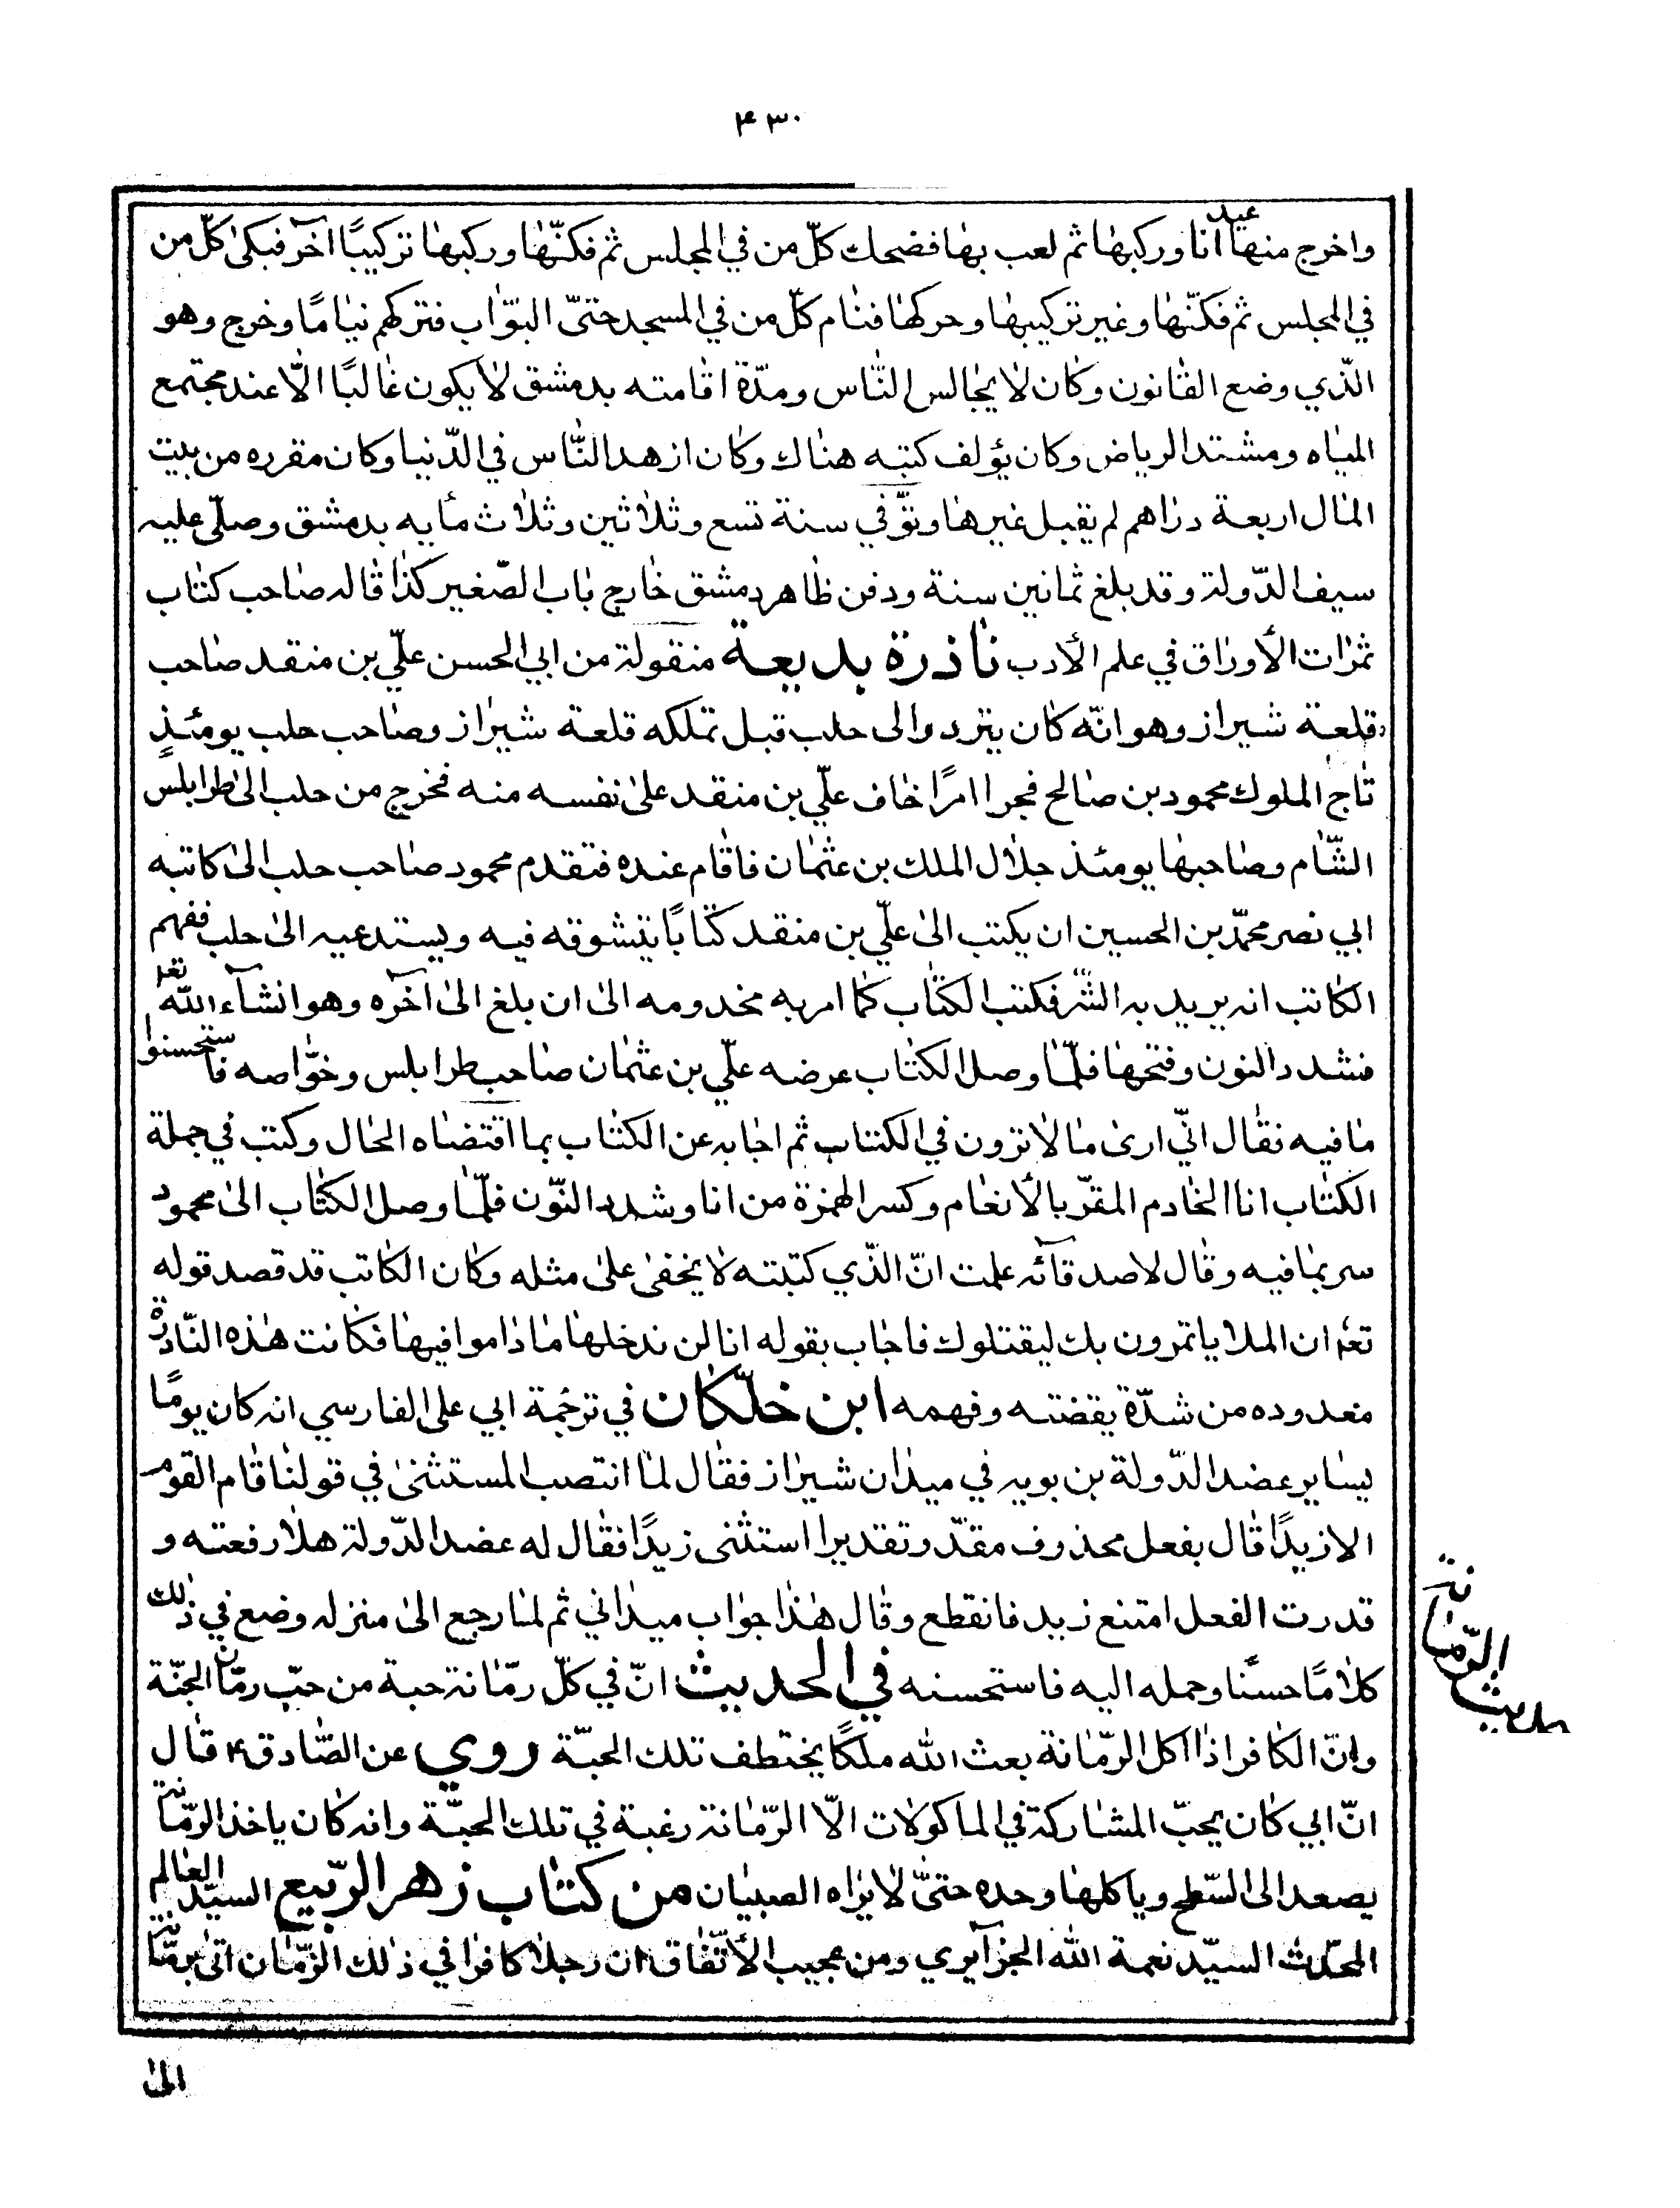 ۴۳۰
واخرج منها عيدانا وركبها ثم لعب بها فضحك كلّ من في المجلس ثم فكّها وركبها تركيبًا آخر فبكى كلّ من
في المجلس ثم فكّها وغير تركيبها وحركها فنام كلّ من في المسجد حتىّ البوّاب فتركهم نيامًا وخرج وهو
الّذي وضع القانون وكان لا يجالس النّاس ومدّة اقامته بدمشق لا يكون غالبًا الّا عند مجتمع
المياه ومشتد الرياض وكان يؤلف كتبه هناك وكان ازهد النّاس في الدّنيا وكان مقرره من بيت
المال اربعة دراهم لم يقبل غيرها وتوّفي سنة تسع وثلاثين وثلاث مأيه بدمشق وصلّى عليه
سيف الدّولة وقد بلغ ثمانين سنة ودفن ظاهر دمشق خارج باب الصّغير كذا قاله صاحب كتاب
ثمرات الأوراق في علم الأدب ناذرة بديعة منقولة من ابي الحسن علّي بن منقد صاحب
قلعة شيراز وهو انّه كان يتردوالى حلب قبل تملكه قلعة شيراز وصاحب حلب يومئذٍ
تاج الملوك محمود بن صالح فجرا امرًا خاف علّي بن منقد على نفسه منه فخرج من حلب الى طرابلس
الشّام وصاحبها يومئذ جلال الملك بن عثمان فاقام عنده فتقدم محمود صاحب حلب الى كاتبه
ابي نصر محمّد بن الحسين ان يكتب الى علّي بن منقد كتابًا يتشوقه فيه ويستدعيه الى حلب ففهم
الكاتب انه يريد به الشّر فكتب الكتاب كما امر به مخدومه الى ان بلغ الى آخره وهو انشآء الله تعر
فشدد النون وفتحها فلمّا وصل الكتاب عرضه علّي بن عثمان صاحب طرابلس وخوّاصه فاستحسنوا
مافيه نقال انّي ارى ما لا ترون في الكتاب ثم اجابه عن الكتاب بما اقتضاه الحال وكتب في جملة
الكتاب انا الخادم المقرّ بالأنعام وكسر الهمزة من انا وشدد النّون فلمّا وصل الكتاب الى محمود
سر بما فيه وقال لاصدقآئه علمت انّ الذّي كتبته لا يخفى على مثله وكان الكاتب قد قصد قوله
تعر ان الملا ياتمرون بك ليقتلوك فاجاب بقوله انا لن ندخلها ماداموا فيها فكانت هذه النّادرة
معدوده من شدّة يقضته وفهمه ابن خلّكان في ترجمة ابي على الفارسي انه كان يومًا
يساير عضد الدّولة بن بويه في ميدان شيراز فقال لما انتصب المستثنى في قولنا قام القوم
الا زيدًا قال بفعل محذوف مقدّر تقديرا استثنى زيدًا فقال له عضد الدّولة هلّا رفعته و
قدرت الفعل امتنع زيد فانقطع وقال هذا جواب ميداني ثم لما رجع الى منزله وضع في ذلك
كلامًا حسنًا وحمله اليه فاستحسنه في الحديث انّ في كلّ رمّانة حبة من حبّ رمّان الجنّة
وانّ الكافر اذا اكل الرمّانة بعث الله ملكًا يختطف تلك الحبّة روي عن الصّادق ع قال
انّ ابي كان يحبّ المشاركة في الماكولات الّا الرّمانة رغبة في تلك الحبّة وانه كان ياخذ الرمّانة
يصعد الى السّطح وياكلها وحده حتىّ لا يراه الصبيان من كتاب زهر الرّبيع السيّد العالم
المحدّث السيّد نعمة الله الجزآيري ومن عجيب الأتّفاق ان رجلا كافرا في ذلك الزّمان اتى برمّانة
حديث الرّمانة
الى